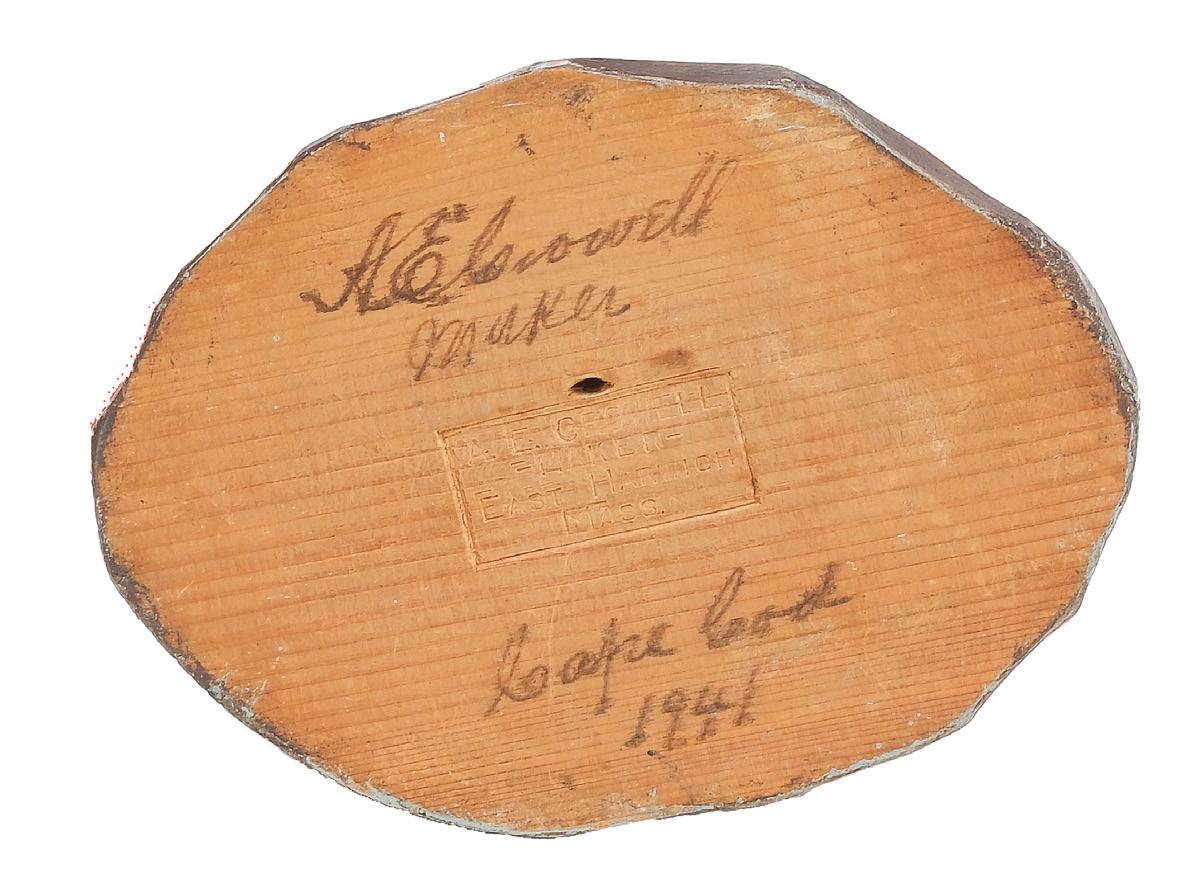 A E Crowell
Maker
A. E. CROWELL
-MAKER-
EAST HARWICH
MASS.
Cape Cod
1941